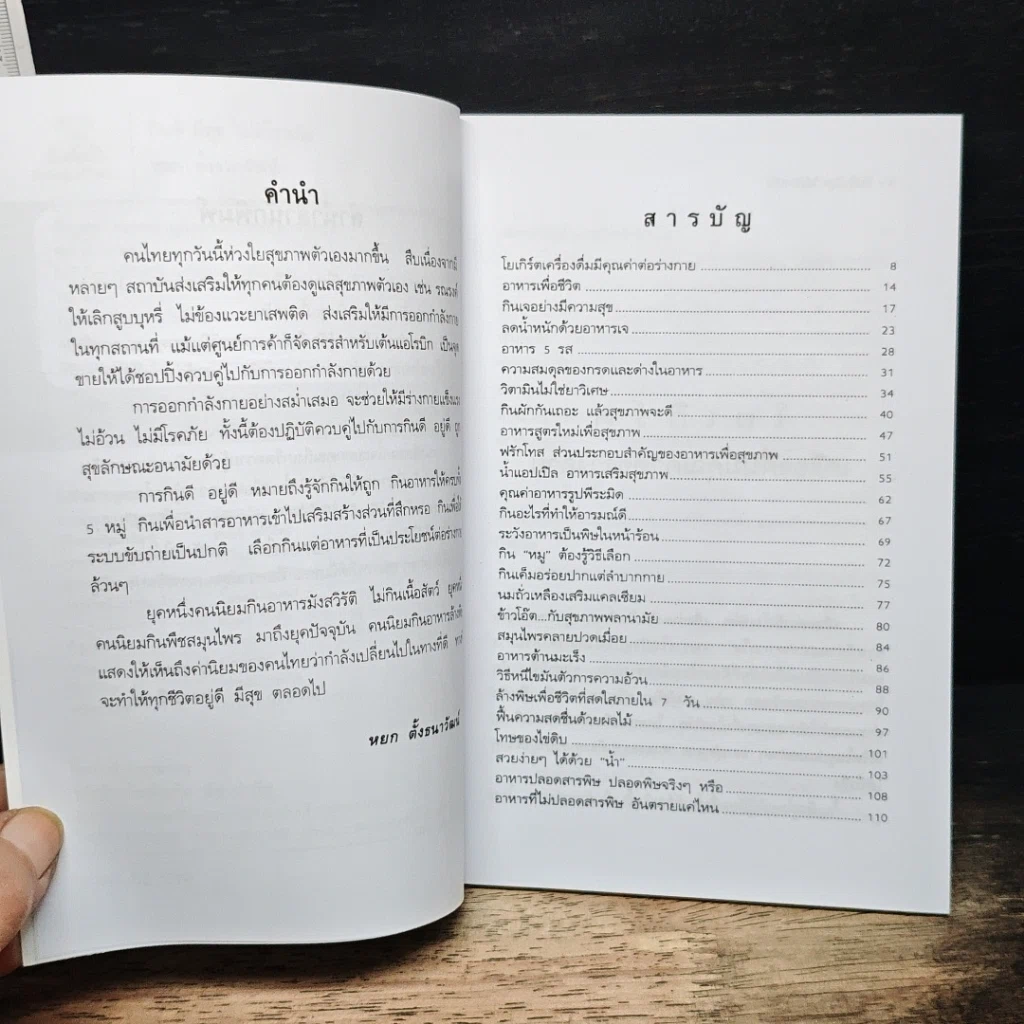 คำนำ
คนไทยทุกวันนี้ห่วงใยสุขภาพตัวเองมากขึ้น สืบเนื่องจากมี
หลายๆ สถาบันส่งเสริมให้ทุกคนต้องดูแลสุขภาพตัวเอง เช่น รณรงค์
ให้เลิกสูบบุหรี่ ไม่ข้องแวะยาเสพติด ส่งเสริมให้มีการออกกำลังกาย
ในทุกสถานที่ แม้แต่ศูนย์การค้าก็จัดสรรสำหรับเต้นแอโรบิก เป็น
ขายให้ได้ชอปปิ้งควบคู่ไปกับการออกกำลังกายด้วย
การออกกำลังกายอย่างสม่ำเสมอ จะช่วยให้มีร่างกายแข็งแรง
ไม่อ้วน ไม่มีโรคภัย ทั้งนี้ต้องปฏิบัติควบคู่ไปกับการกินดี อยู่ดี
สุขลักษณะอนามัยด้วย
การกินดี อยู่ดี หมายถึงรู้จักกินให้ถูก กินอาหารให้ครบทั้ง
5 หมู่ กินเพื่อนำสารอาหารเข้าไปเสริมสร้างส่วนที่สึกหรอ กินเพื่อให้
ระบบขับถ่ายเป็นปกติ เลือกกินแต่อาหารที่เป็นประโยชน์ต่อร่างกาย
ล้วนๆ
ยุคหนึ่งคนนิยมกินอาหารมังสวิรัติ ไม่กินเนื้อสัตว์ ยุคหนึ่ง
คนนิยมกินพืชสมุนไพร มาถึงยุคปัจจุบัน คนนิยมกินอาหารล้างพิษ
แสดงให้เห็นถึงค่านิยมของคนไทยว่ากำลังเปลี่ยนไปในทางที่ดี
จะทำให้ทุกชีวิตอยู่ดี มีสุข ตลอดไป
หยก ตั้งธนาวัฒน์
สารบัญ
โยเกิร์ตเครื่องดื่มมีคุณค่าต่อร่างกาย 8
อาหารเพื่อชีวิต 14
กินเจอย่างมีความสุข 17
ลดน้ำหนักด้วยอาหารเจ 23
อาหาร 5 รส 28
ความสมดุลของกรดและด่างในอาหาร 31
วิตามินไม่ใช่ยาวิเศษ 34
กินผักกันเถอะ แล้วสุขภาพจะดี 40
อาหารสูตรใหม่เพื่อสุขภาพ 47
ฟรักโทส ส่วนประกอบสำคัญของอาหารเพื่อสุขภาพ 51
น้ำแอปเปิล อาหารเสริมสุขภาพ 55
คุณค่าอาหารรูปพีระมิด 62
กินอะไรที่ทำให้อารมณ์ดี 67
ระวังอาหารเป็นพิษในหน้าร้อน 69
กิน "หมู" ต้องรู้วิธีเลือก 72
กินเค็มอร่อยปากแต่ลำบากกาย 75
นมถั่วเหลืองเสริมแคลเซียม 77
ข้าวโอ๊ต...กับสุขภาพพลานามัย 80
สมุนไพรคลายปวดเมื่อย 84
อาหารต้านมะเร็ง 86
วิธีหนีไขมันตัวการความอ้วน 88
ล้างพิษเพื่อชีวิตที่สดใสภายใน 7 วัน 90
ฟื้นความสดชื่นด้วยผลไม้ 97
โทษของไข่ดิบ 101
สวยง่ายๆ ได้ด้วย "น้ำ" 103
อาหารปลอดสารพิษ ปลอดพิษจริงๆ หรือ 108
อาหารที่ไม่ปลอดสารพิษ อันตรายแค่ไหน 110